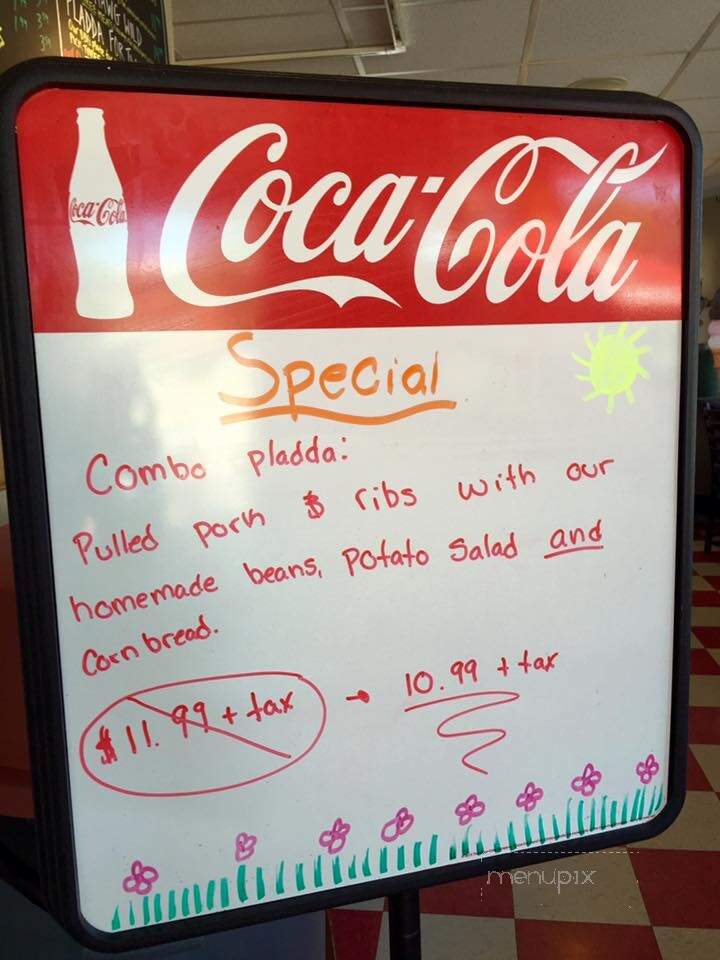 WILD
PLADDA FOR
Coca-Cola
Coca-Cola
Special
Combo pladda:
Pulled pork & ribs with our
homemade beans, potato salad and
Corn bread.
$11.99 + tax → 10.99 + tax
menupix